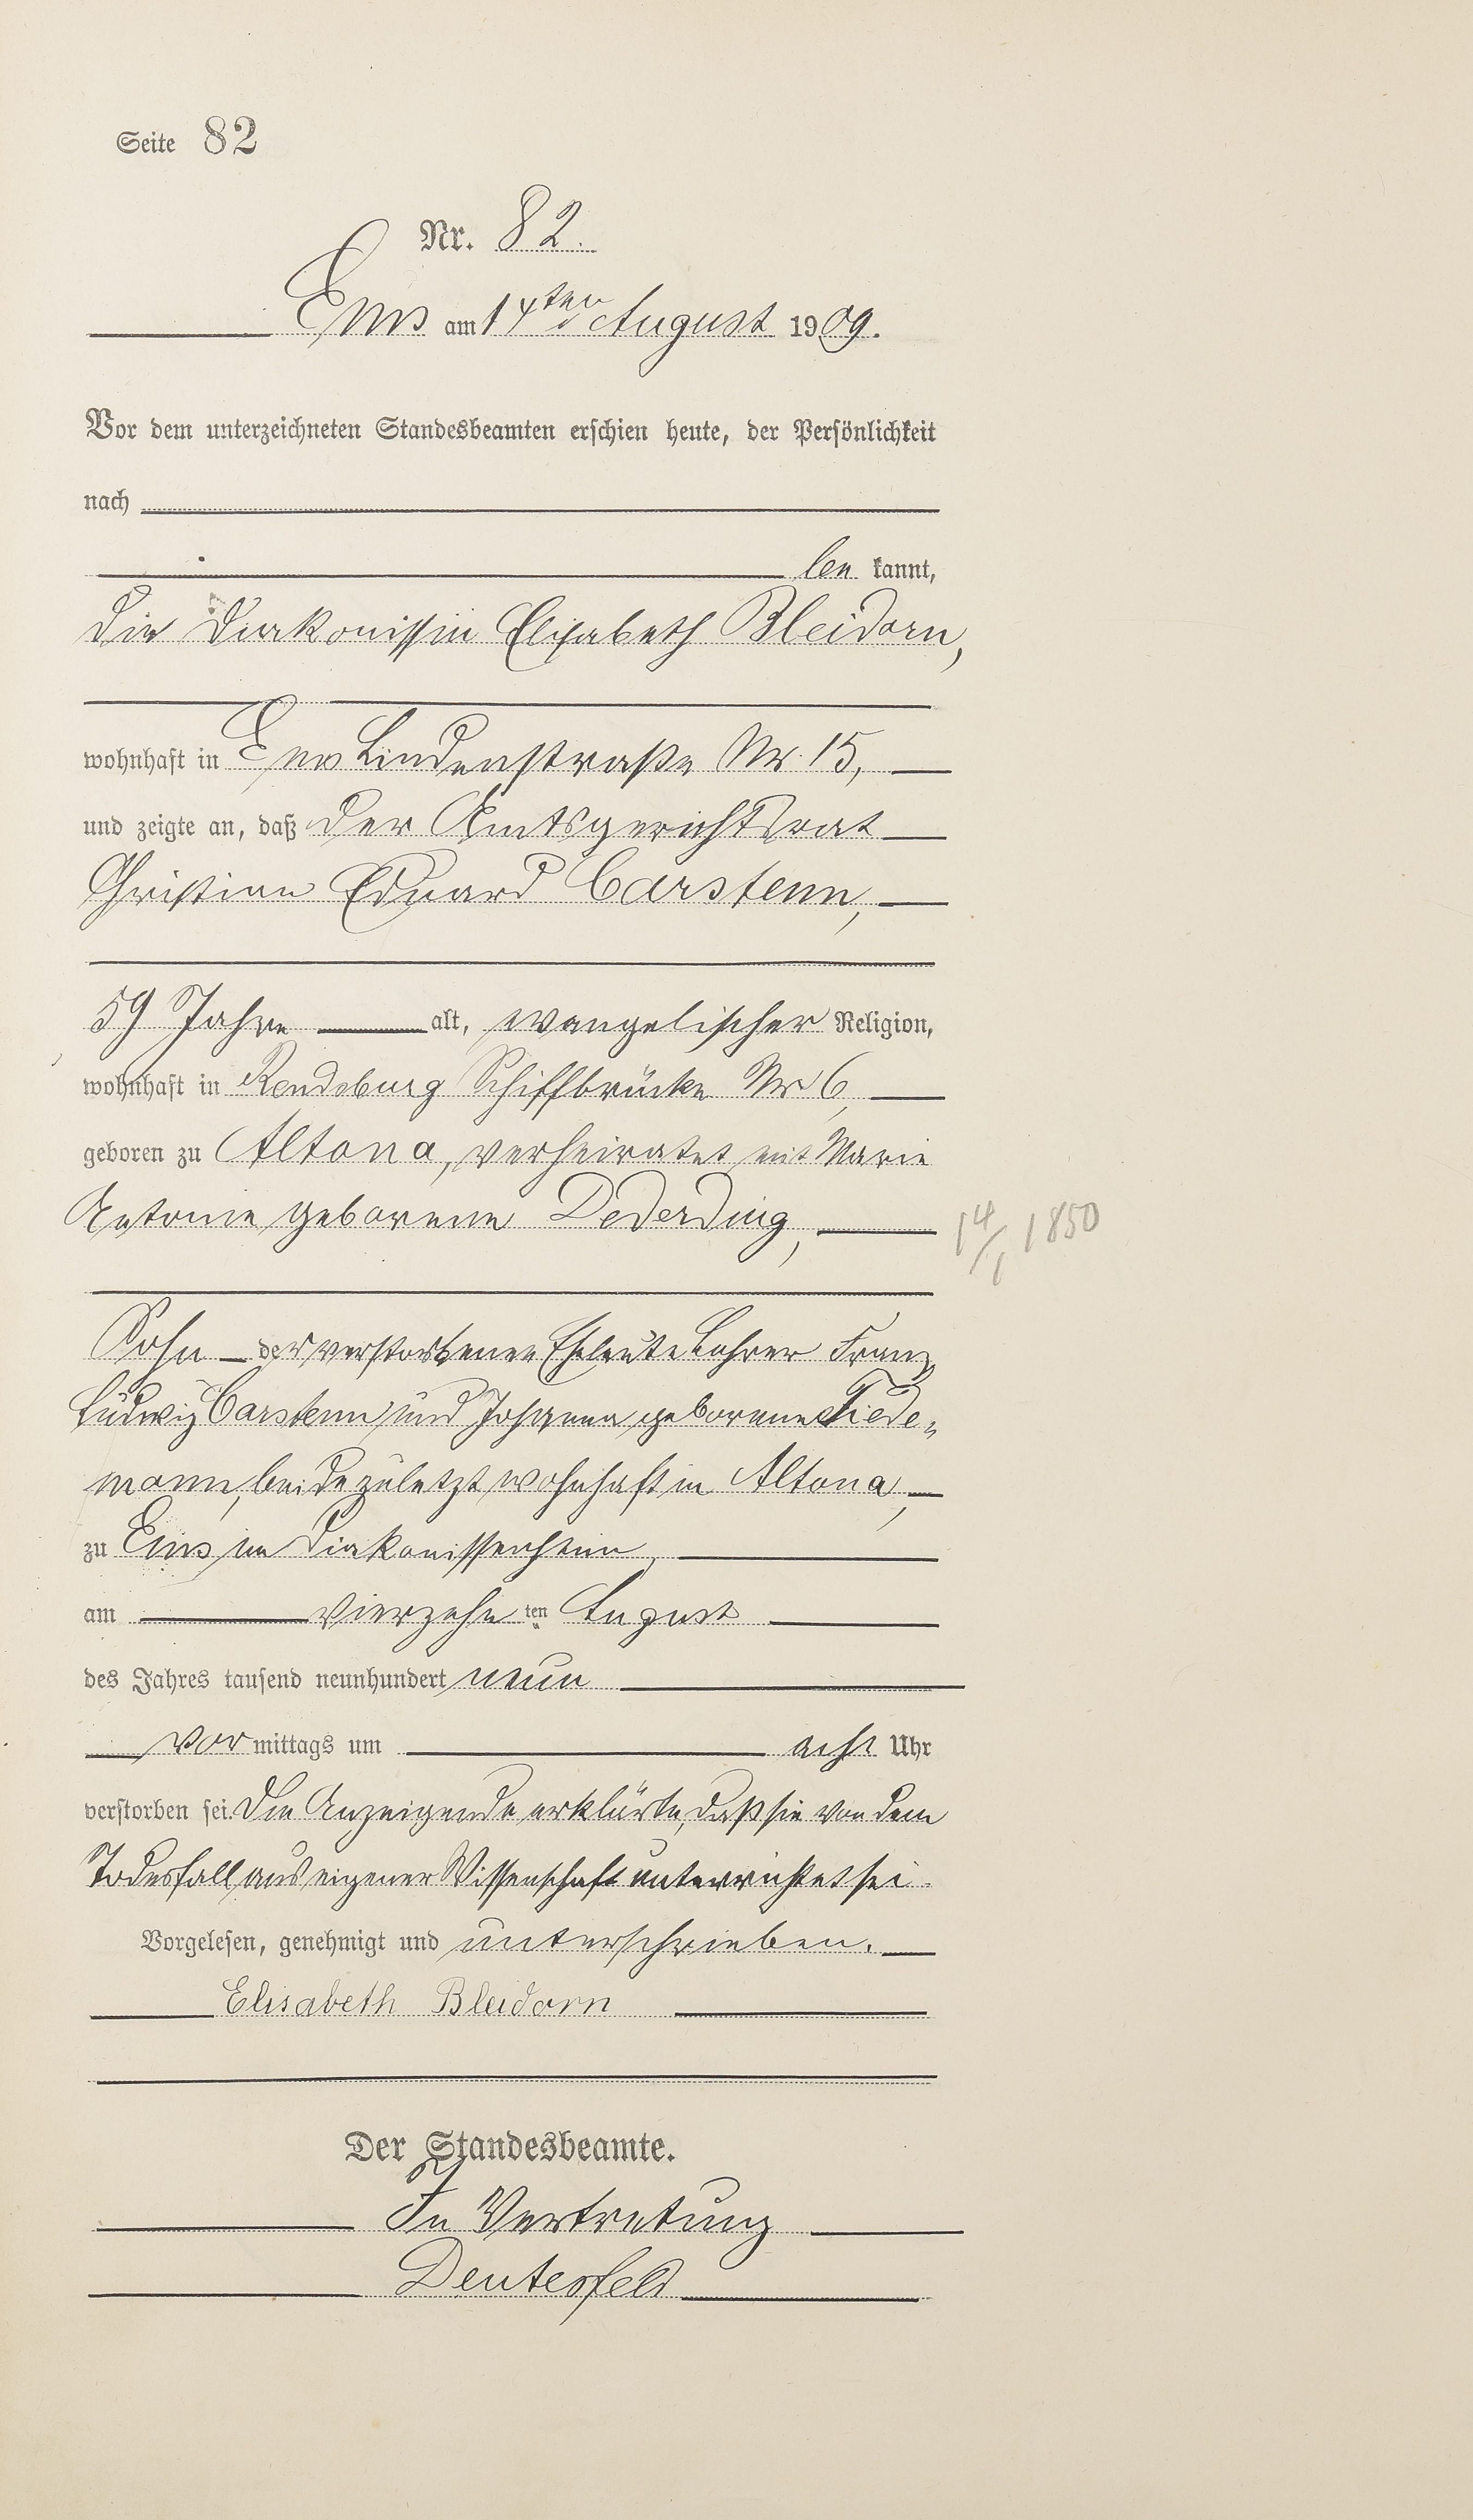 Seite 82
Nr. 82.
Ems am 14ten August 1909.
Vor dem unterzeichneten Standesbeamten erschien heute, der Persönlichkeit
nach
be kannt,
die Diakonissin Elisabeth Bleidorn,
wohnhaft in Ems Lindenstraße Nr. 15,
und zeigte an, daß der Amtsgerichtsrat
Christian Eduard Carstenn,
59 Jahre alt, evangelischer Religion,
wohnhaft in Rendsburg Schiffbrücke Nr 6,
geboren zu Altona, verheiratet mit Marie
Antonie geborenen Dederding,
14/1 1850
Sohn der verstorbenen Eheleute Lehrer Franz
Ludwig Carstenn und Johanna geborene Tiede-
mann, beide zuletzt wohnhaft in Altona,
zu Ems im Diakonissenheim,
am vierzehn ten August
des Jahres tausend neunhundert neun
vor mittags um acht Uhr
verstorben sei. Die Anzeigende erklärte, daß sie von dem
Todesfall aus eigener Wissenschaft unterrichtet sei.
Vorgelesen, genehmigt und unterschrieben.
Elisabeth Bleidorn
Der Standesbeamte.
In Vertretung
Deutesfeld